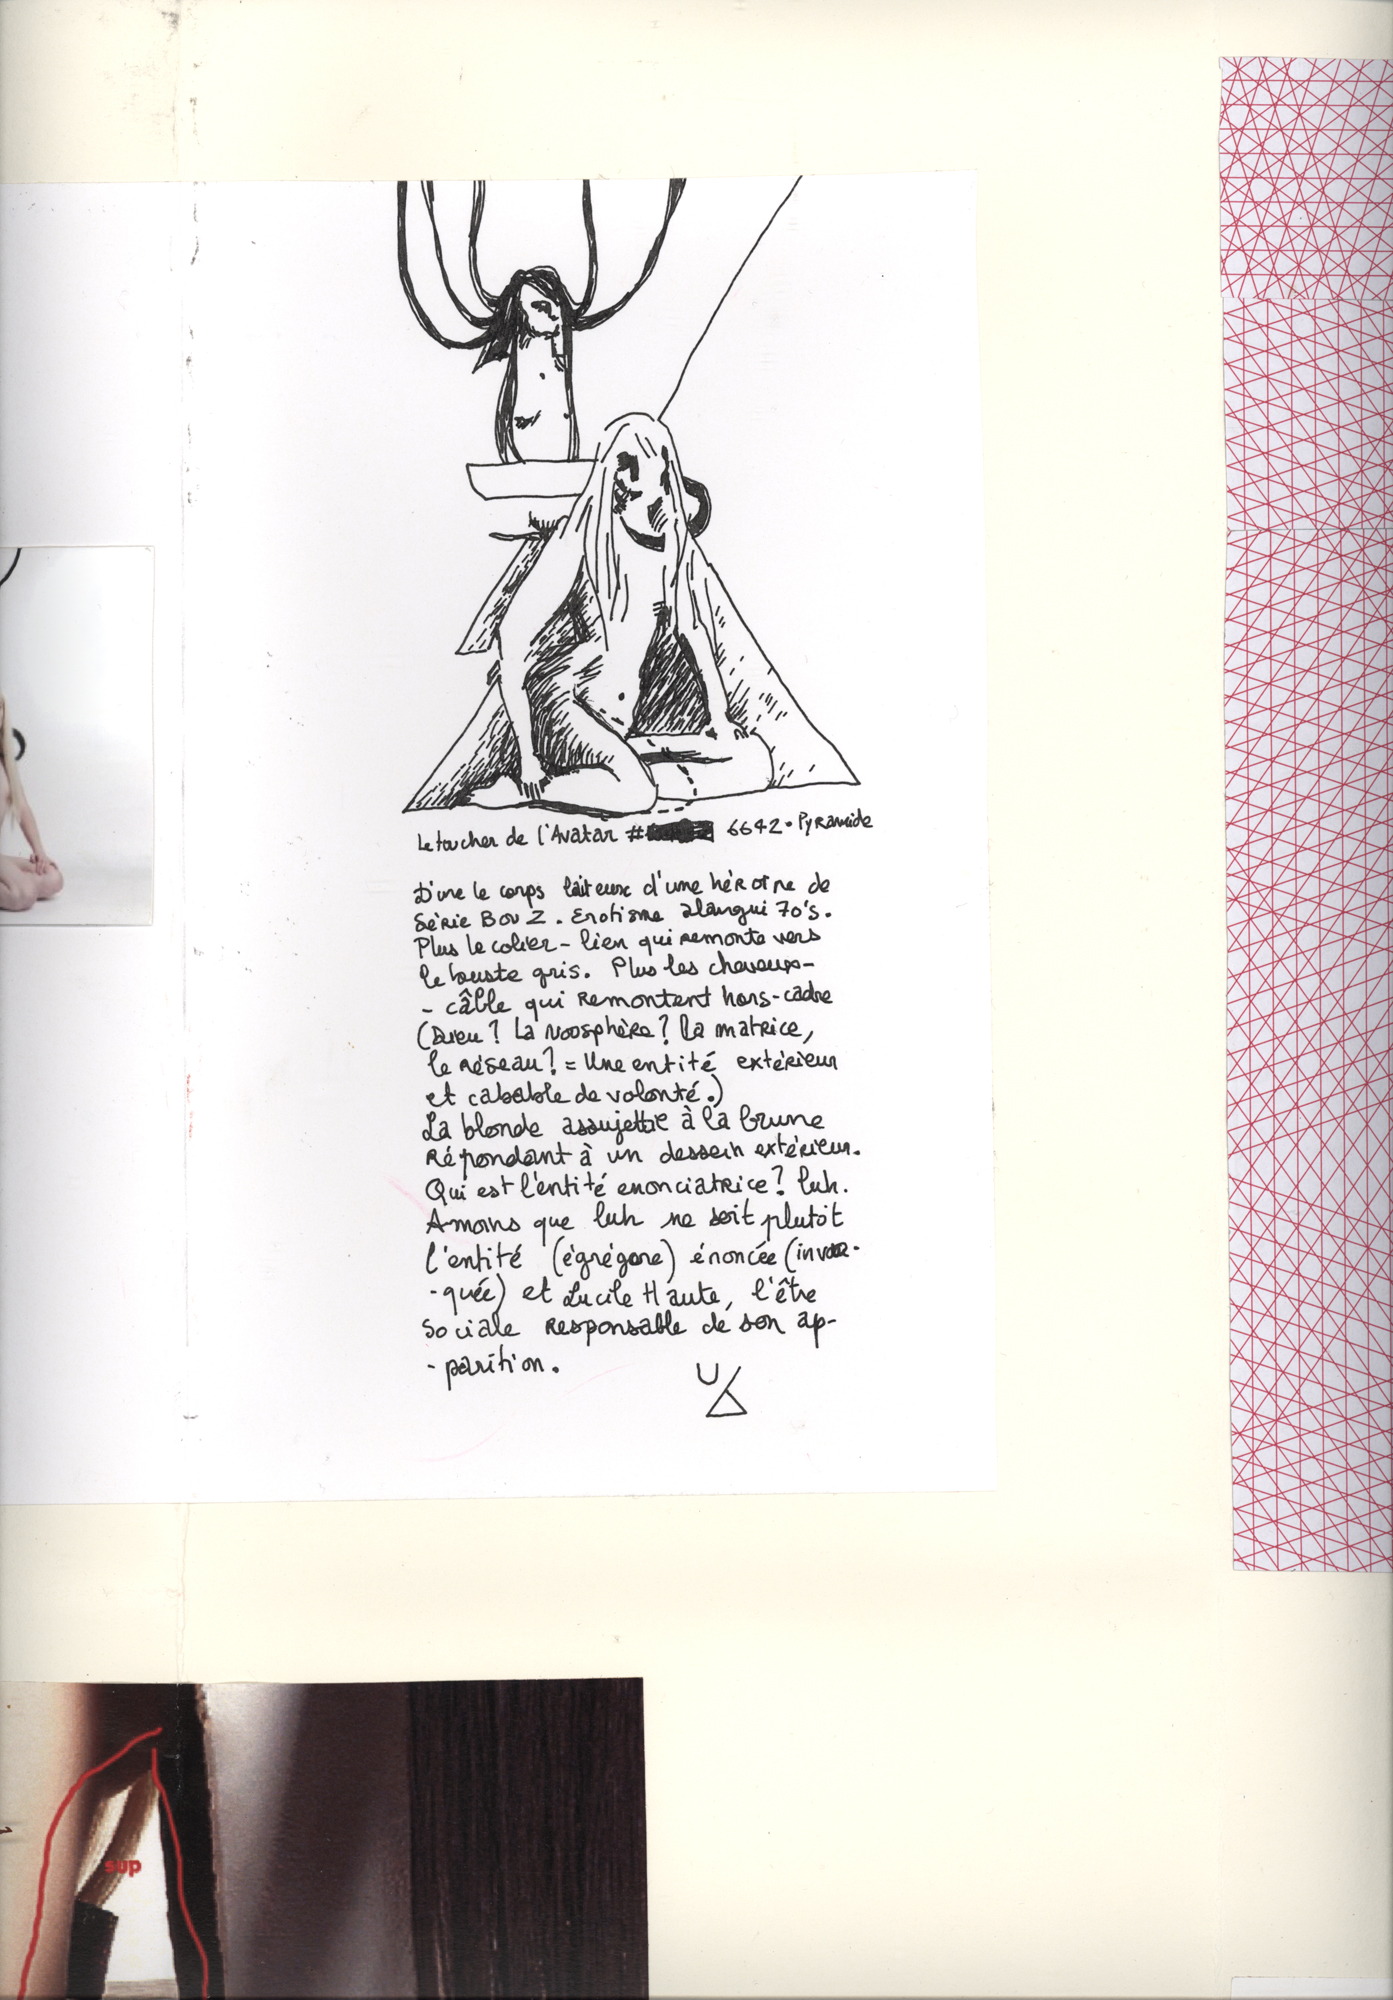 Le toucher de l'Avatar # 6642. Pyramide
D'une le corps laiteux d'une héroïne de
Série B ou Z. Erotisme alangui 70's.
Plus le colier - lien qui remonte vers
le buste gris. Plus les cheveux-
- câble qui remontent hors-cadre
(Dieu? La Noosphère? La matrice,
le réseau? = Une entité extérieur
et cabable de volonté.)
La blonde assujettie à la brune
Répondant à un dessein extérieur.
Qui est l'entité enonciatrice? luh.
A moins que luh ne soit plutôt
l'entité (égrégore) énoncée (invo-
-quée) et Lucile Haute, l'être
Sociale responsable de son ap-
-parition.
sup